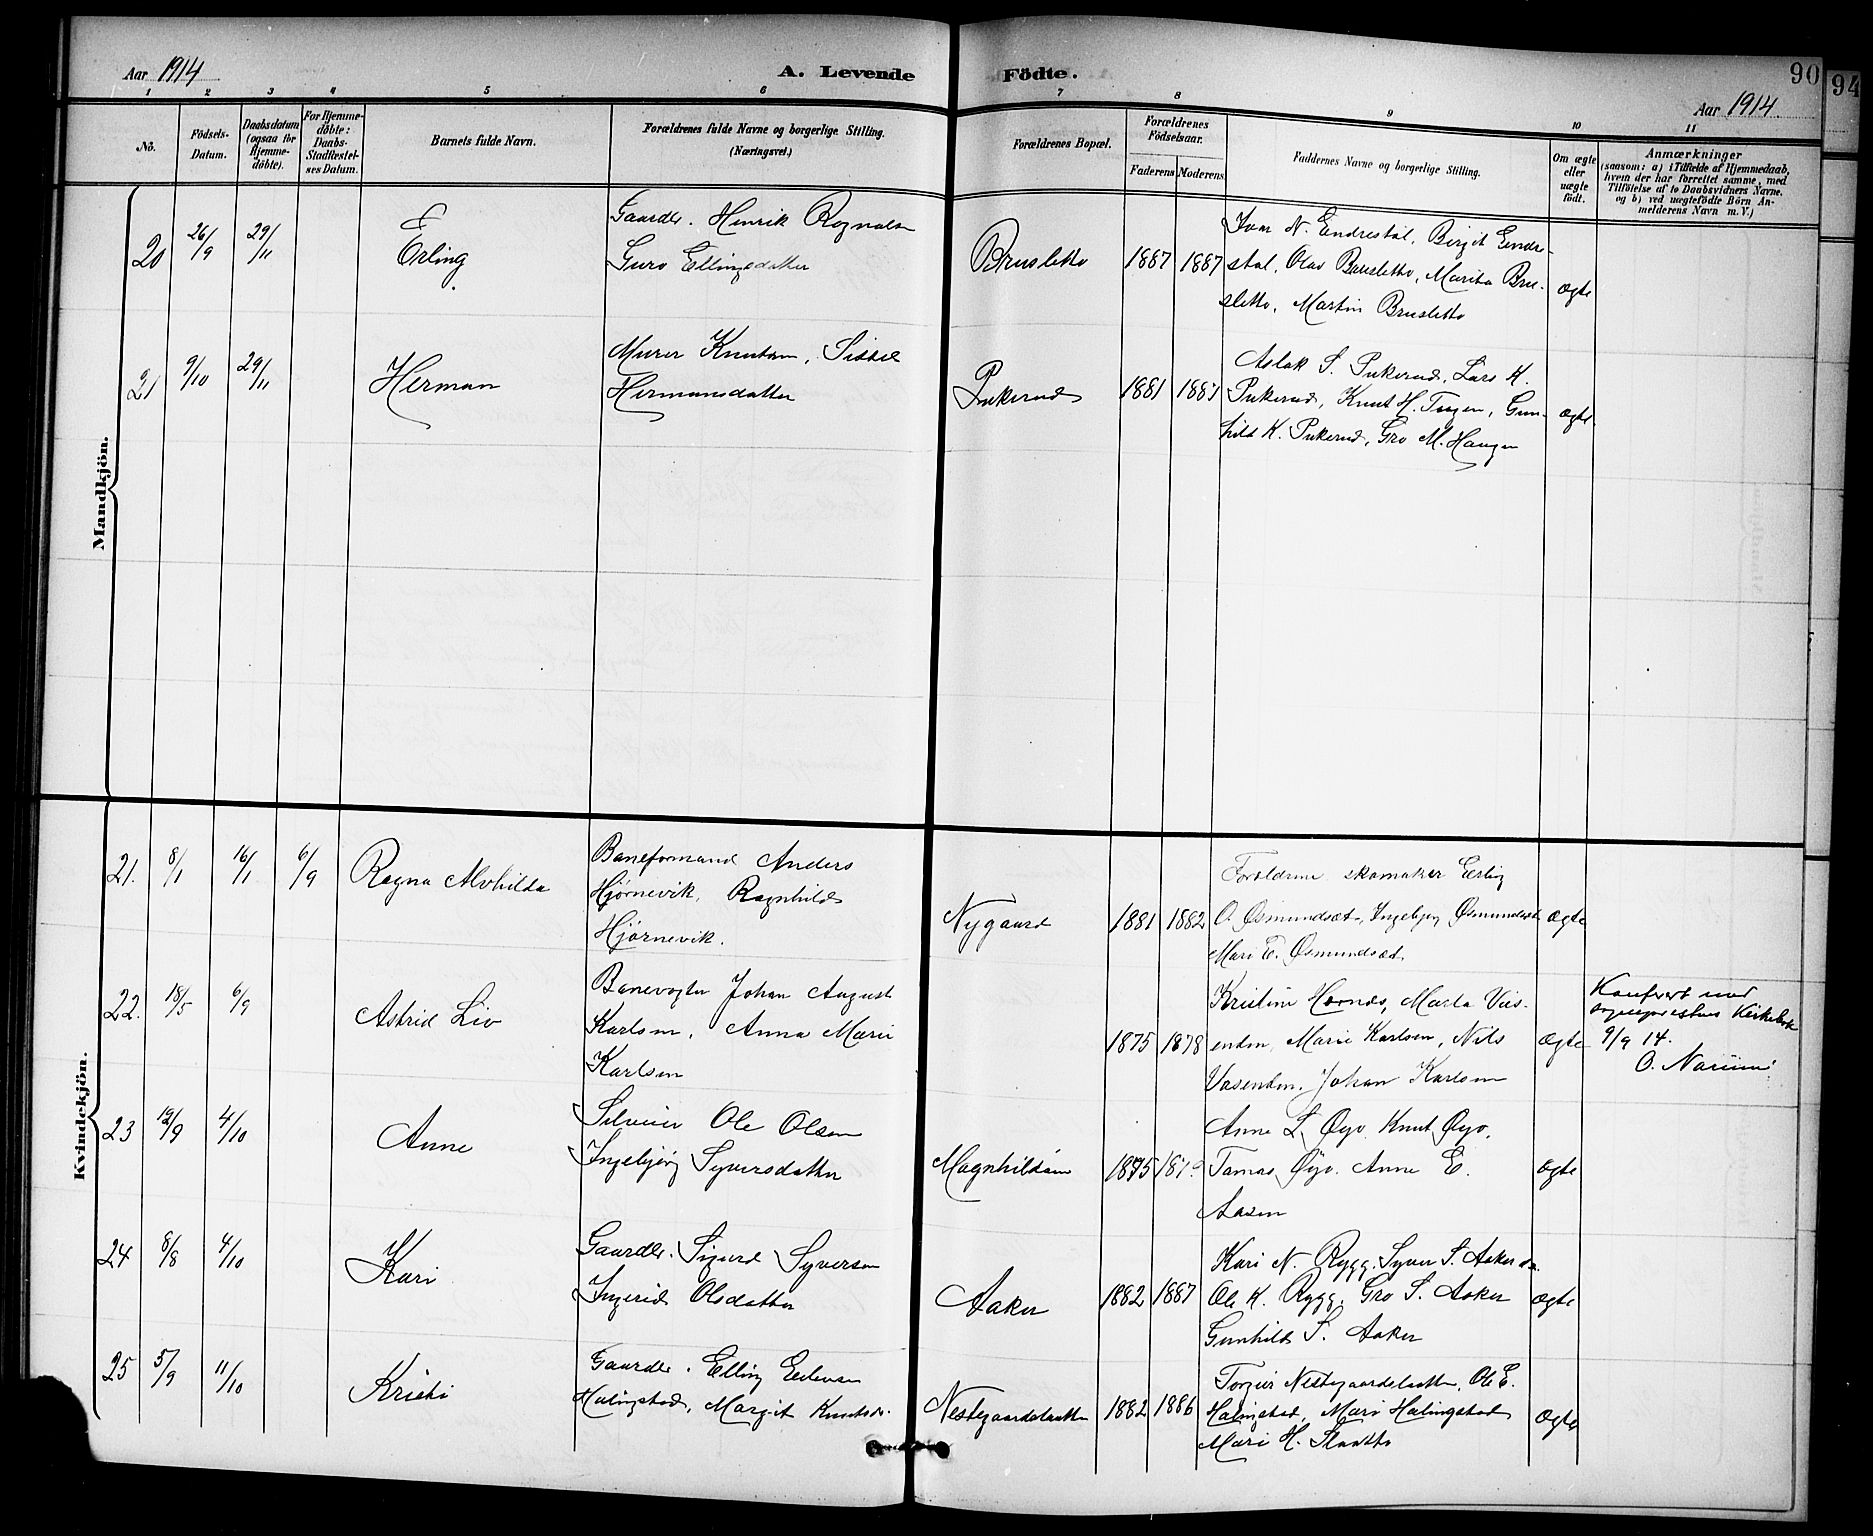 90
94
Aar 1914
A. Levende Födte.
Aar 1914
1 2 3 4 5 6 7 8 9 10 11
No.
Födsels-Datum.
Daabsdatum (ogsaa for Hjemme-döbte).
For Hjemme-döbte: Daabs-Stadfæstel-ses Datum.
Barnets fulde Navn.
Forældrenes fulde Navne og borgerlige Stilling. (Næringsvei.)
Forældrenes Bopæl.
Forældrenes Födselsaar.
Faderens Moderens
Faddernes Navne og borgerlige Stilling.
Om ægte eller uægte födt.
Anmærkninger
(saasom: a) i Tilfælde af Hjemmedaab, hvem der har forrettet samme, med Tilföielse af to Daabsvidners Navne. og b) ved uægtefödte Börn An-melderens Navn m. V.)
Mandkjön.
20 26/9 29/11 Erling
Gaardbr. Henrik Rognalsen
Guro Ellingsdatter
Brusletto 1887 1887
Ivar N. Endrestøl, Birgit Endre-
støl, Olav Brusletto, Marita Bru-
sletto, Martin Brusletto
ægte
21 9/10 29/11 Herman
Murer Knutsen, Sissel
Hermansdatter
Pukerud 1881 1881
Aslak S. Pukerud, Lars K.
Pukerud, Knut H. Tragen, Gun-
hild K. Pukerud, Gro M. Haugen
ægte
Kvindekjön.
21. 8/1 16/1 6/9 Ragna Alvhilda
Baneformand Anders
Hjørnevik, Ragnhild
Hjørnevik.
Nygaard 1881 1882
Forældrene, skomaker Erling
O. Øsmundsæt, Ingebjør Øsmundsæt
Mari E. Øsmundsæt
ægte
22. 18/5 6/9 Astrid Liv
Banevogter Johan August
Karlsen, Anna Marie
Karlsen
1875 1878
Kristine Hornes, Marta Vas-
enden, Marie Karlsen, Nils
Vasenden, Johan Karlsen
ægte
Konfrert med
sogneprestens Kirkebok
9/9 14.
O. Narum
23 12/9 4/10 Anne
Ole Olsen
Ingebjørg Syversdatter
Magnhildøen 1875
Anne L. Øyo, Knut Øyo,
Tomas Øyo, Anne E.
Aasen
ægte
24 8/8 4/10 Kari
Gaardbr. Sigurd Syversen
Ingerid Olsdatter
Aaker 1882 1887
Kari N. Rygg, Syver S. Aaker
Ole K. Rygg, Gro S. Aaker
Gunhild S. Aaker
ægte
25 5/9 11/10 Kristi
Gaardbr. Elling Eilevsen
Halingstad, Margit Knutsdr.
Nestegaardslaatten 1882 1886
Torgeir Nestegaardslaatten, Ole E.
Halingstad, Mari Halingstad
Mari H. Slaatto
ægte